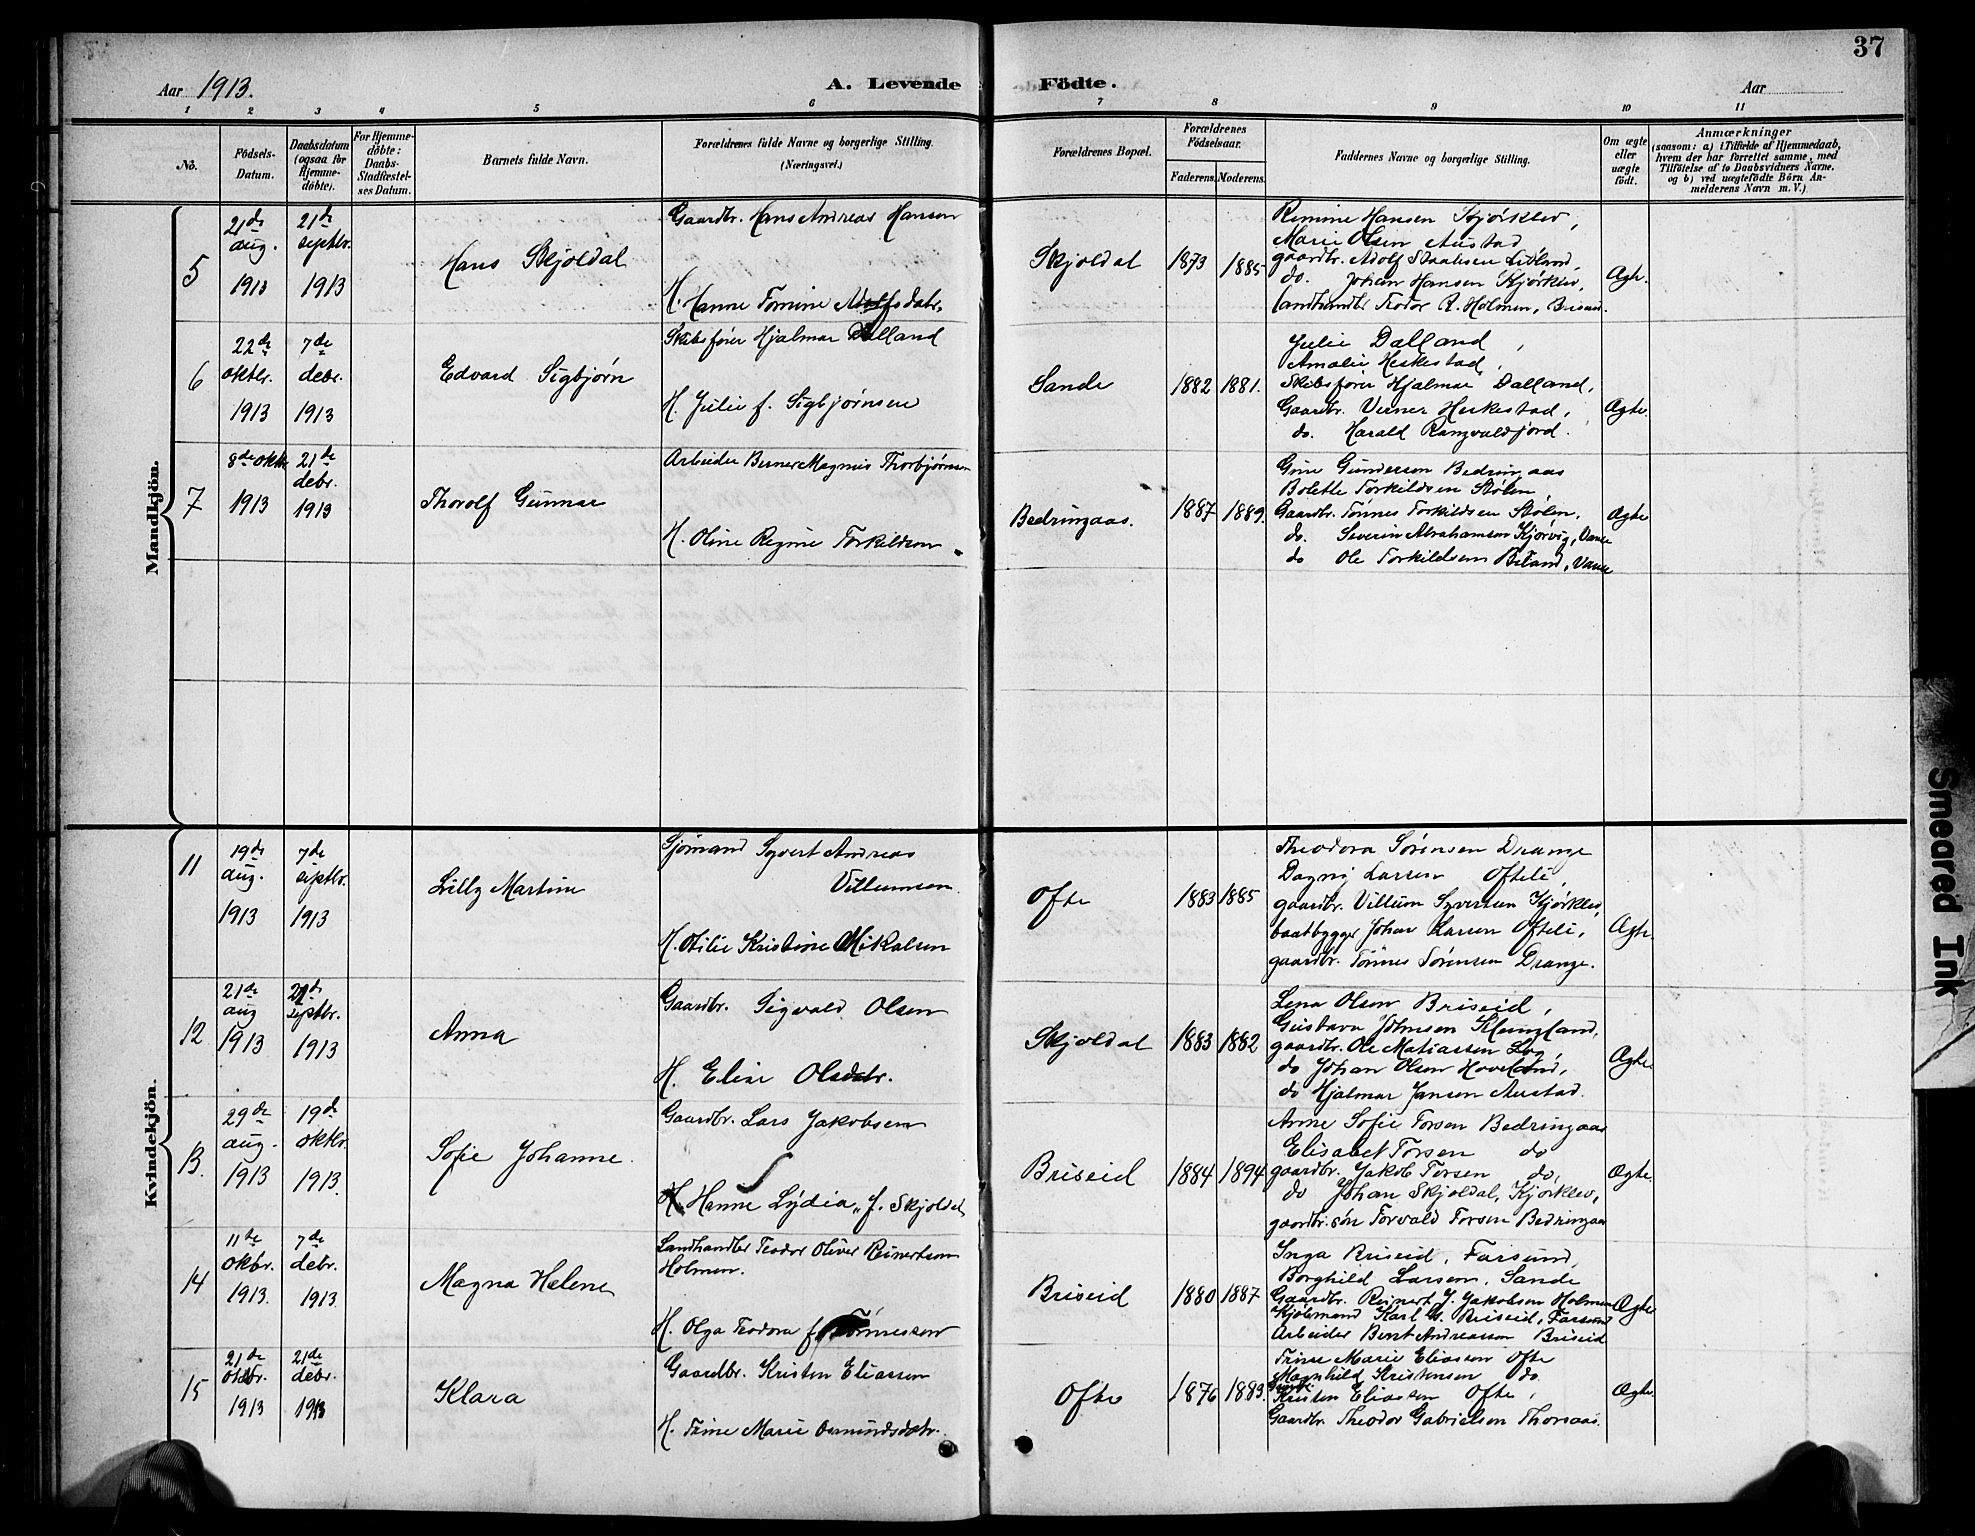 37
Aar 1913.
A. Levende Födte.
Aar
1 2 3 4 5 6 7 8 9 10 11
No.
Födsels-Datum.
Daabsdatum (ogsaa for Hjemmedöbte).
For Hjemmedöbte: Daabs-Stadfæstelses Datum.
Barnets fulde Navn.
Forældrenes fulde Navne og borgerlige Stilling.
(Næringsvei.)
Forældrenes Bopæl.
Forældrenes Födselsaar.
Faderens. Moderens.
Faddernes Navne og borgerlige Stilling.
Om ægte eller uægte födt.
Anmærkninger
(saasom: a) i Tilfælde af Hjemmedaab,
hvem der har forrettet samme, med
Tilföielse af to Daabsvidners Navne.
og b) ved uægtefödte Börn An-
melderens Navn m. V.)
Mandkjön.
5
21de aug. 1913
21de septbr. 1913
Hans Skjoldal
Gaardbr. Hans Andreas Hansen
H. Hanne Tomine Adolfsdatr.
Skjoldal
1873
1885
Remine Hansen Kjørklev,
Marie Olsen Austad
gaardbr. Adolf Staalesen
do. Johan Hansen Kjørklev,
landhandler Teodor R. Holmen, Briseid.
Ægte.
6
22de oktbr. 1913
7de debr. 1913
Edvard Sigbjørn
Skibsfører Hjalmar Dalland
H. Julie f. Sigbjørnsen
Sande
1882
1881.
Julie Dalland,
Amalie Heskestad,
Skibsfører Hjalmar Dalland,
Gaardbr. Verner Heskestad,
do. Harald Rangvaldfjord.
Ægte.
7
8de oktbr 1913
21de debr. 1913
Thorolf Gunnar
Arbeider Berner Magnus Thorbjørnsen
H. Oline Regine Torkildsen
Bedringaas.
1887
1889.
Gine Gundersen Bedringaas
Bolette Torkildsen Stølen,
Gaardbr. Tønnes Torkildsen Stølen,
do. Severin Abrahamsen Kjørvig, Vanse
do Ole Torkildsen, Vanse
Ægte
Kvindekjön.
11
19de aug. 1913
7de septbr. 1913
Lilly Martine
Sjømand Syvert Andreas
Villumsen.
H. Otilie Kristine Mikalsen
Ofte
1883
1885
Theodora Sørensen Drange
Dagny Larsen Ofteli,
gaardbr. Villum Syvertsen Kjørklev,
baatbygger Johan Larsen Ofteli,
gaardbr. Tønnes Sørensen Drange.
Ægte.
12
21de aug 1913
21de septbr. 1913
Anna
Gaardbr. Sigvald Olsen
H. Elise Olsdatr.
Skjoldal
1883
1882
Lena Olsen Briseid,
Gustava Johnsen Kleungland,
gaardbr. Ole Matiassen
do Johan Olsen Hoveland,
do Hjalmar Jansen Austad.
Ægte
13.
29de aug. 1913
19de oktbr 1913.
Sofie Johanne.
Gaardbr. Lars Jakobsen
H. Hanne Lydia, f. Skjoldal
Briseid
1884
1894
Anne Sofie Torsen Bedringaas
Elisabet Torsen do
gaardbr. Jakob Torsen do,
do Johan Skjoldal, Kjørklev,
gaardbr. søn Torvald Torsen Bedringaas
Ægte.
14
11te oktbr. 1913.
7de debr. 1913.
Magna Helene
Landhandler Teodor Oliver Reinertsen
Holmen.
H. Olga Teodora f. Tønnessen
Briseid
1880
1887
Inga Briseid, Farsund,
Borghild Larsen, Sande
Gaardbr. Reinert J. Jakobsen Holmen
Kjøbmand Karl Briseid, Farsund
Arbeider Bernt Andreassen Briseid
Ægte
15
21de oktbr. 1913
21de debr. 1913
Klara
Gaardbr. Kristen Eliassen
H. Trine Marie Osmundsdatr.
Ofte
1876
1883.
Trine Marie Eliassen Ofte
Magnhild Kristensen do.
Gaardbr. Kristen Eliassen Ofte,
Gaardbr. Theodor Gabrielsen Thorsaas.
Ægte.
Smeared Ink